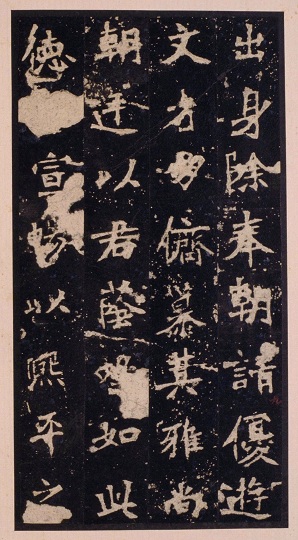 出身除奉朝請優遊
文省朋儕慕其雅尚
朝廷以君蔭望如此
德宣暢以熙平之